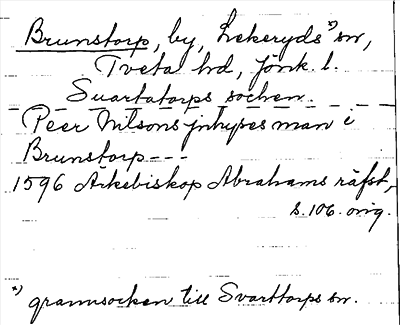 Brunstorp, by, Lekeryds *) sn,
Tveta hd, Jönk. l.
Suartatorps sochen
Peer Nilsons jnhyses man i
Brunstorp---
1596 Ärkebiskop Abrahams räfst,
s. 106. orig.
*) grannsocken till Svarttorps sn.